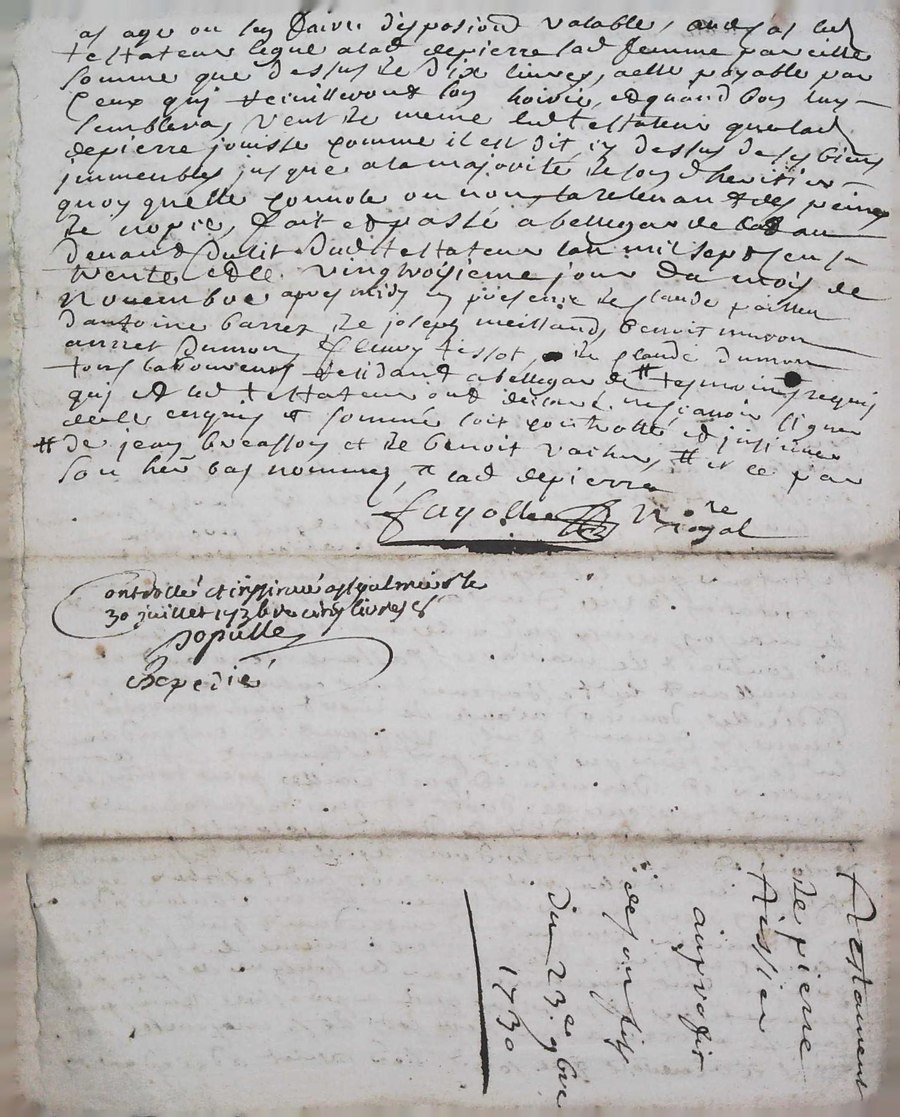 as age ou den faire disposiond valable, and sas led
testateur legue alad depierre sad femme pareille
somme que dessus de dix livres, a elle payable par
ceux qui receuilleront son hoirie, et quand bon luy
semblera, veut de meme led testateur que lad
depierre jouisse comme il est dit cy dessus de ses biens
immeubles jusque a la majorité de son dheritier
quoy quelle convole ou non
fait et passé a bellegarde
devand du lit dud testateur lan mil sept sent
trente et le vingtroisieme jour du mois de
novembre apres midy en presence de claude
dantoine barret de joseph meilland, benoit
dumon, fleury tissot, de claude dumon
tous laboureurs residand a bellegarde # tesmoins requis
qui et led testateur ont declaré ne scavoir signer
de ce enquis et sommé soit controllé et insinué
# de jean breassons et de benoit vacher, # et ce par
son heir bas nommez, # lad depierre
fayolle Nore royal
controllé et insinué a st galmier le
30 juillet 1732 livres
populle
Expedié
Testament
de pierre
Tissier
au proffit
de son fils
du 23e 9bre
1730